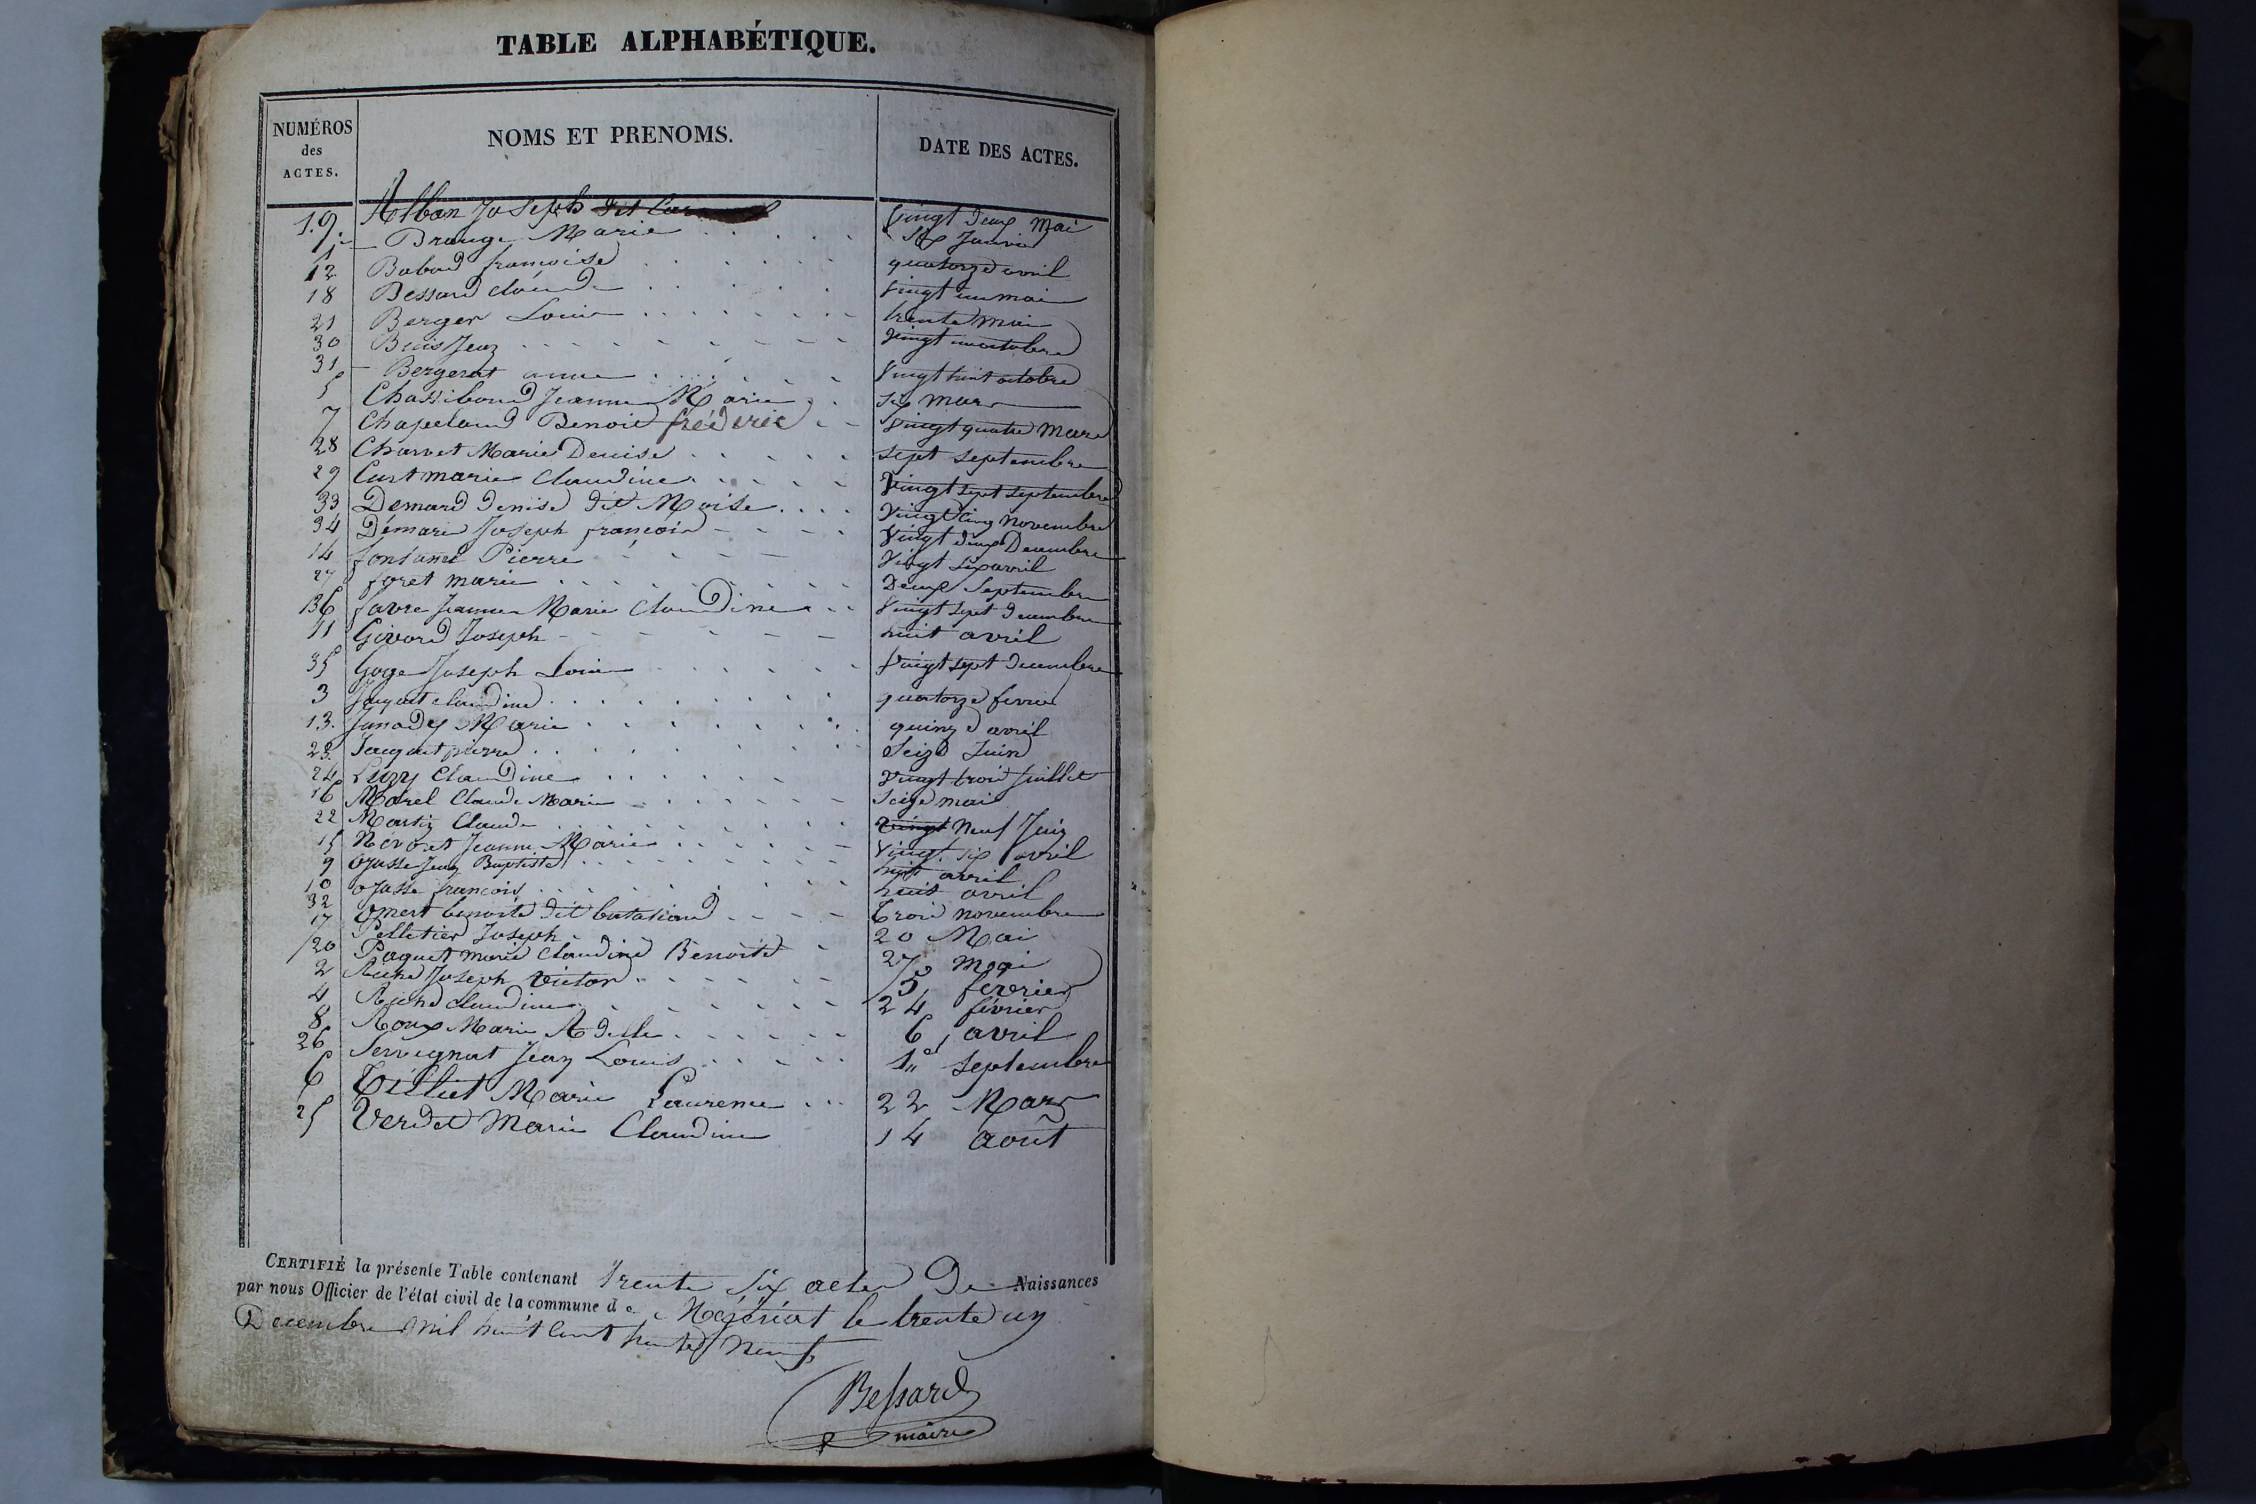 TABLE ALPHABÉTIQUE.
NUMÉROS des ACTES. NOMS ET PRENOMS. DATE DES ACTES.
19. Alban Joseph dit vingt deux Mai
1 Brange Marie six Janvier
12 Babad françoise quatorze avril
18 Bessard claude vingt un mai
21 Berger Louis trente mai
30 Buis Jean vingt un octobre
31 Bergerat anne vingt huit octobre
5 Chassiboud Jeanne Marie six mars
7 Chapeland Benoit fréderic vingt quatre Mars
28 Charvet Marie Denise sept septembre
29 Curt marie Claudine vingt sept septembre
33 Demard denise dit Moise vingt cinq novembre
34 Démare Joseph françois vingt deux Decembre
14 fontanet Pierre vingt six avril
27 foret marie Deux Septembre
36 favre Jeanne Marie Claudine vingt sept decembre
11 Givord Joseph huit avril
35 Goge Joseph Louis vingt sept decembre
3 Jaquet claudine quatorze fevrier
13. Junody Marie quinze avril
23. Jauquet pierre Seize Juin
24 Luzy Claudine vingt trois Juillet
16 Morel Claude Marie seize mai
22 Martin Claude vingt neuf Juin
15 Névoret Jeanne Marie vingt six avril
9 ojasse Jean Baptiste huit avril
10 ojasse françois huit avril
32 omert benoite dit bataliand trois novembre
17 Pelletier Joseph 20 Mai
20 Paquet marie Claudine Benoite 27 mai
2 Riche Joseph victor 5 fevrier
4 Riche claudine 24 février
8 Roux Marie Adelle 6 avril
26 Servignat Jean Louis 1er septembre
6 Tilliet Marie Laurence 22 Mars
25 Verdet Marie Claudine 14 Août
CERTIFIÉ la présente Table contenant trente six actes De Naissances
par nous Officier de l'état civil de la commune de Mégériat le trente un
Decembre mil huit cent trente neuf
Bessard
maire